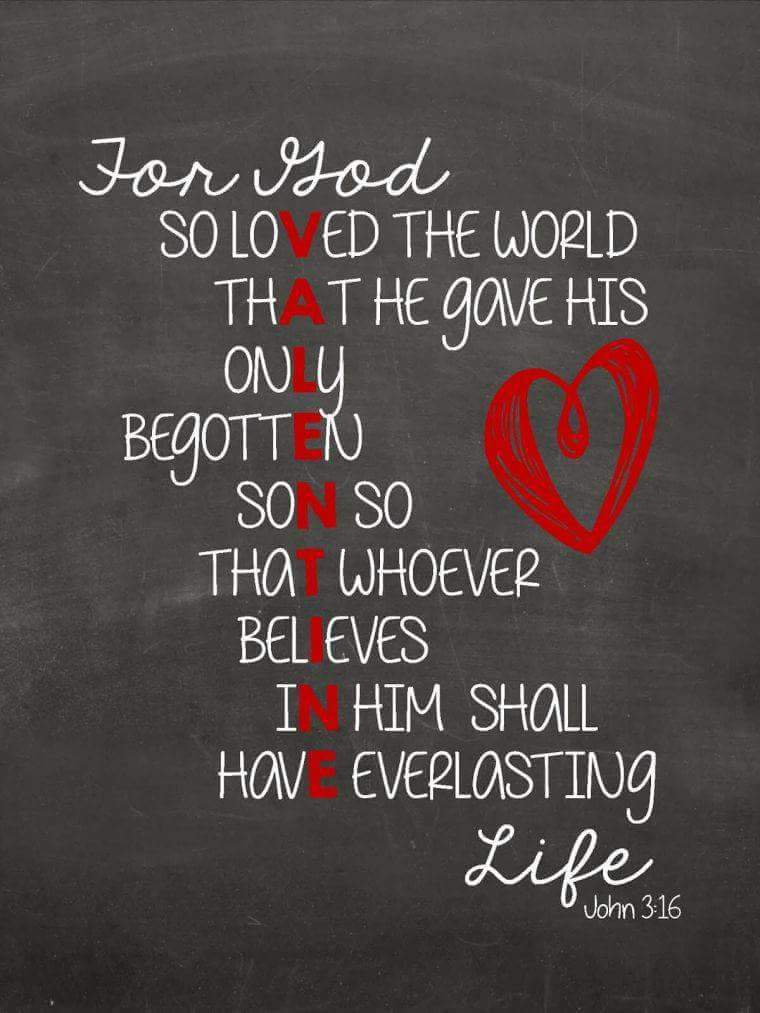 For God
SO LOVED THE WORLD
THAT HE gaVE HIS
ONLy
BEgOTTEN
SON SO
THaT WHOEVER
BELIEVES
IN HIM SHaLL
HaVE EVERLaSTINg
Life
John 3:16